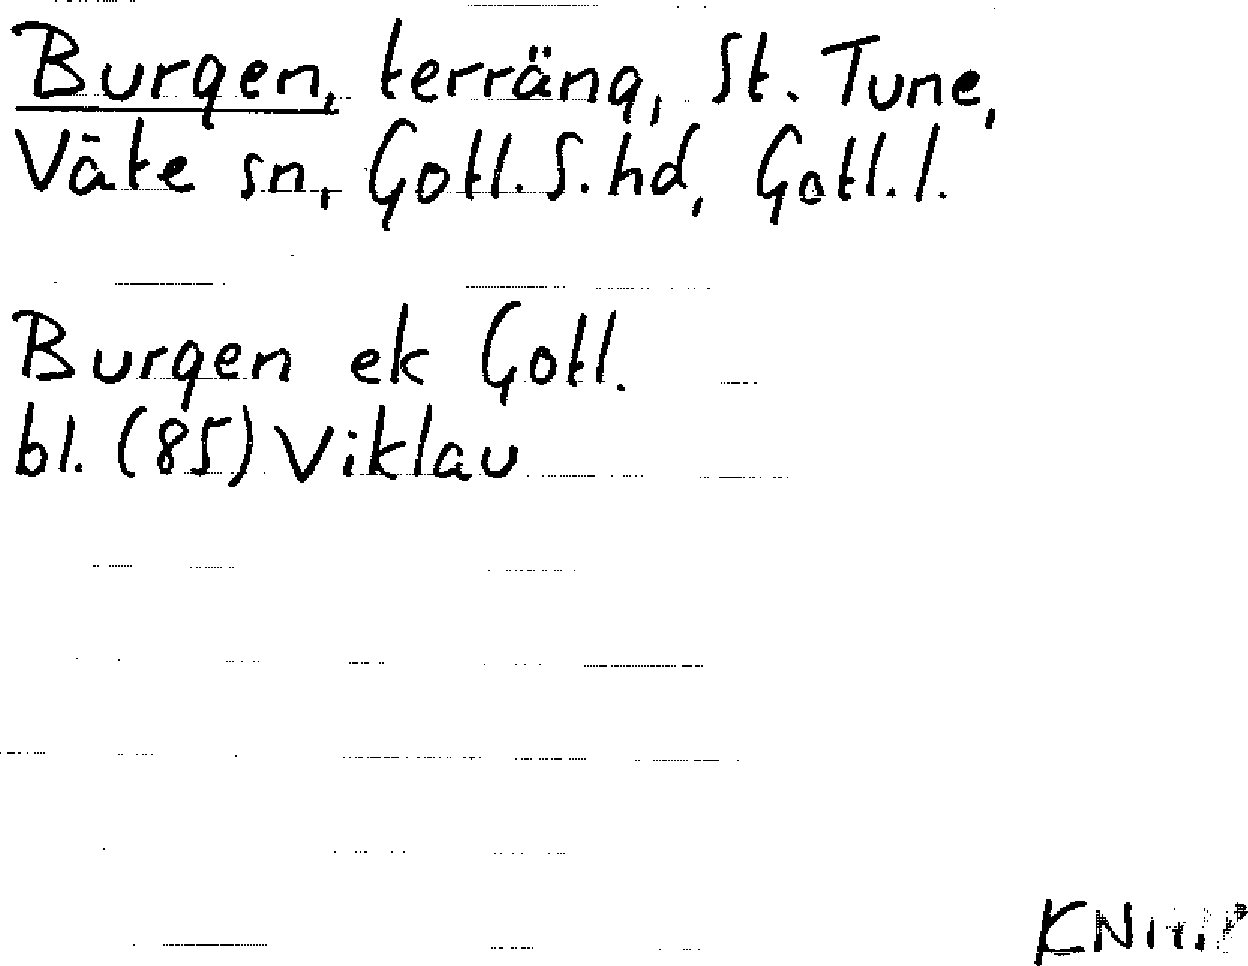 Burgen, terräng, St. Tune,
Väte sn, Gotl. S. hd, Gotl. l.
Burgen ek Gotl.
bl. (85) Viklau